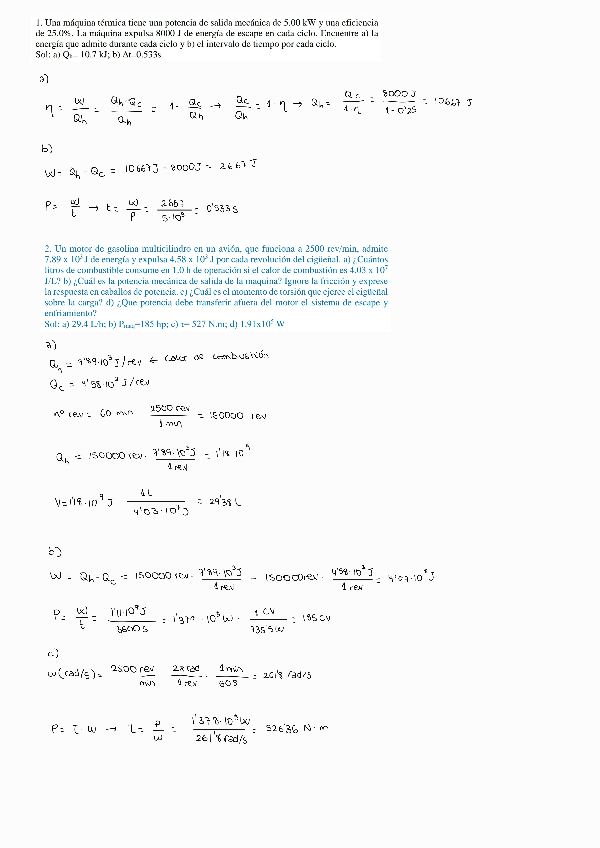 1. Una máquina térmica tiene una potencia de salida mecánica de 5.00 kW y una eficiencia
de 25.0%. La máquina expulsa 8000 J de energía de escape en cada ciclo. Encuentre a) la
energía que admite durante cada ciclo y b) el intervalo de tiempo por cada ciclo.
Sol: a) Qh= 10.7 kJ; b) Δt=0.533s
a)
η = W/Qh = Qh-Qc/Qh = 1 - Qc/Qh → Qc/Qh = 1-η → Qh = Qc/1-η = 8000 J/1-0'25 = 10667 J
b)
W = Qh - Qc = 10667 J - 8000 J = 2667 J
P = W/t → t = W/P = 2667/5·10³ = 0'533 s
2. Un motor de gasolina multicilindro en un avión, que funciona a 2500 rev/min, admite
7.89 x 10³ J de energía y expulsa 4.58 x 10³ J por cada revolución del cigüeñal. a) ¿Cuántos
litros de combustible consume en 1.0 h de operación si el calor de combustión es 4.03 x 10⁷
J/L? b) ¿Cuál es la potencia mecánica de salida de la maquina? Ignore la fricción y exprese
la respuesta en caballos de potencia. c) ¿Cuál es el momento de torsión que ejerce el cigüeñal
sobre la carga? d) ¿Que potencia debe transferir afuera del motor el sistema de escape y
enfriamiento?
Sol: a) 29.4 L/h; b) =185 hp; c) τ= 527 N.m; d) 1.91x10⁵ W
a)
Qh = 7'89·10³ J/rev ← calor de combustión
Qc = 4'58·10³ J/rev
nº rev = 60 min 2500 rev/1 min = 150000 rev
Qh = 150000 rev · 7'89·10³ J/1 rev = 1'18·10⁹
V = 1'18·10⁹ J 1 L/4'03·10⁷ J = 29'38 L
b)
W = Qh-Qc = 150000 rev · 7'89·10³ J/1 rev - 150000 rev · 4'58·10³ J/1 rev =
P = W/t = /3600 s = · 10⁵ W · 1 CV/735'5 W = 185 CV
c)
w(rad/s) = 2500 rev/min 2π rad/1 rev · 1 min/60 s = 261'8 rad/s
P = τ · w → τ = P/w = 1'378·10⁵ W/261'8 rad/s = 526'36 N·m